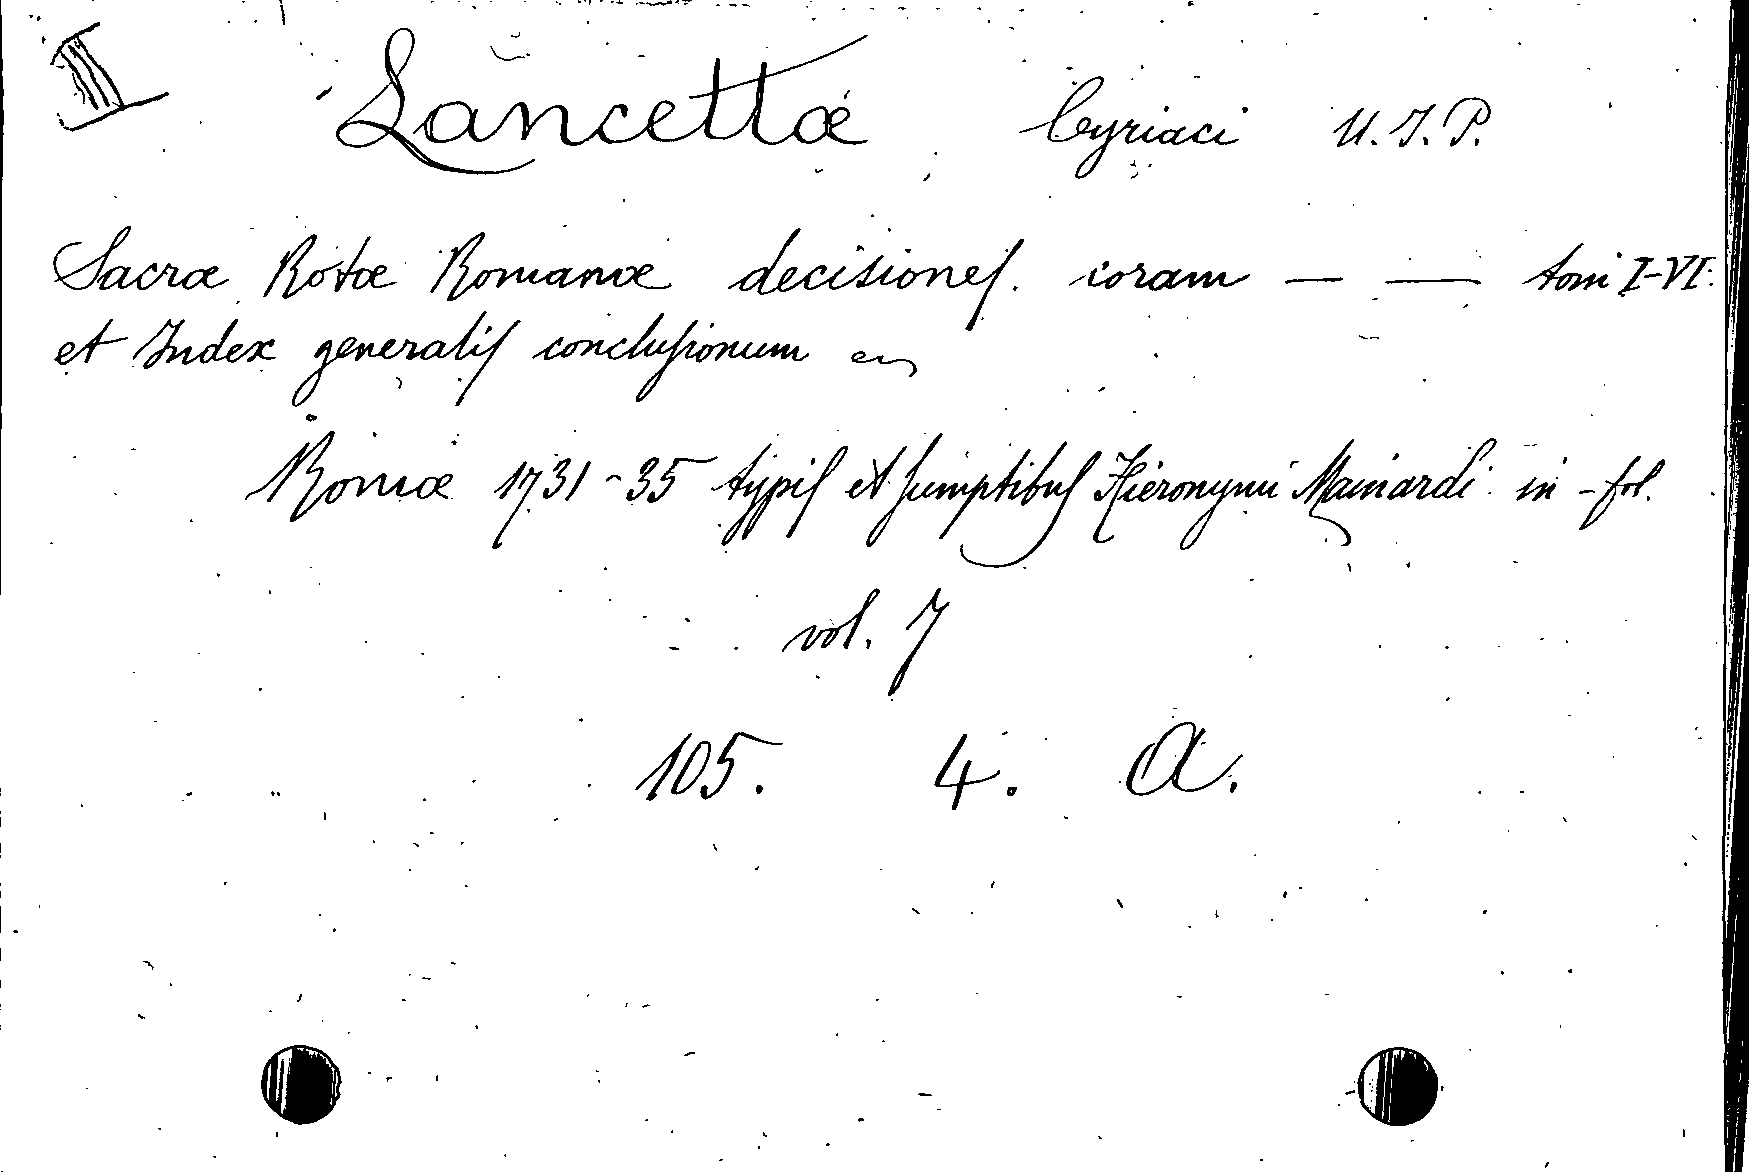 III
Lancettæ Cyriaci U. J. P.
Sacræ Rotæ Romanæ decisiones. coram — — tomi I-VI.
et Index generalis conclusionum
Romæ 1731-35 typis et sumptibus Hieronymi Mainardi in-fol.
vol. 7
105. 4. A.